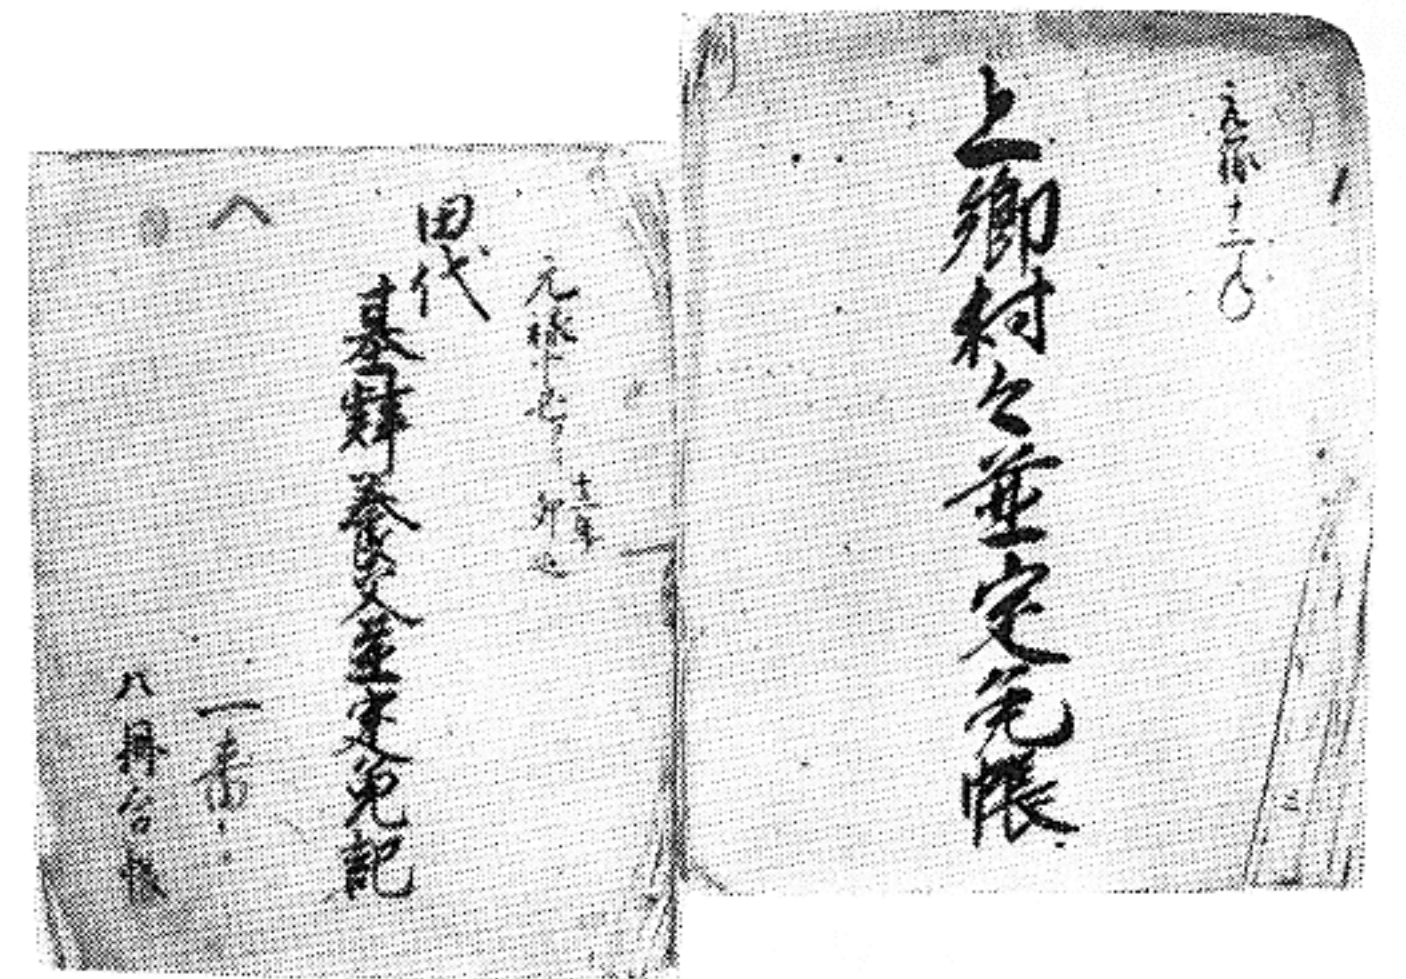 元禄十二
上郷村々並定免帳
元禄十
十二年
卯
田代
基肄養父並定免記
一番
八冊合帳